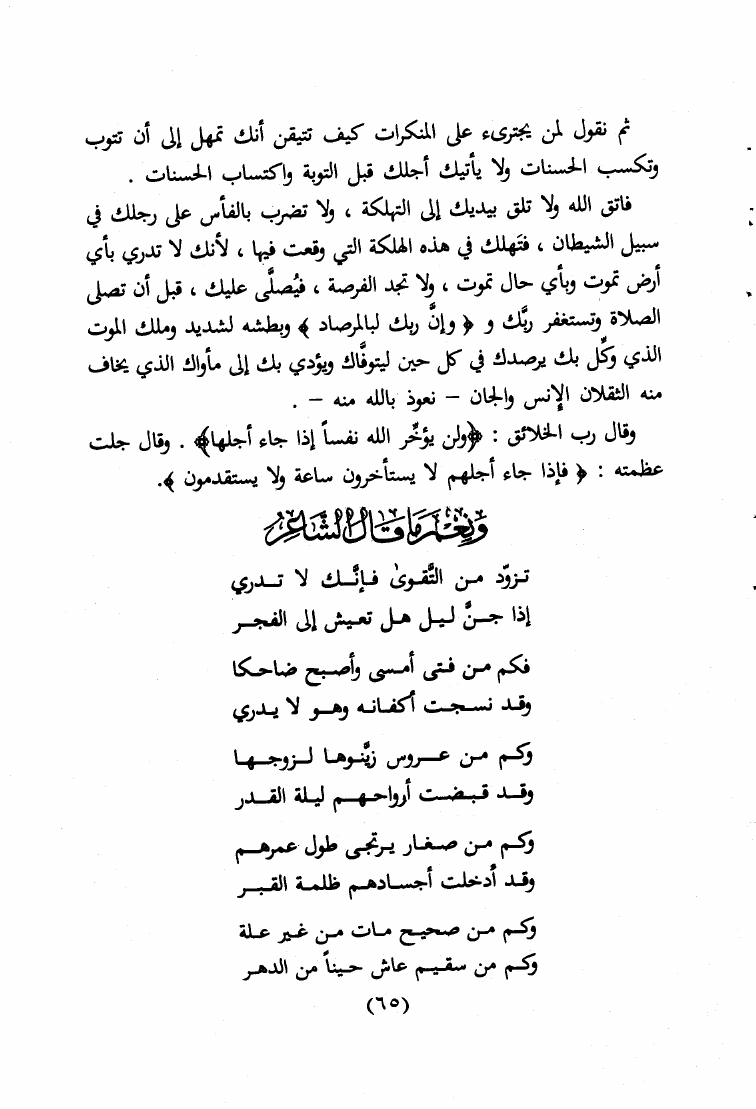 ثم نقول لمن يجترىء على المنكرات كيف تتيقن أنك تمهل إلى أن تتوب
وتكسب الحسنات ولا يأتيك أجلك قبل التوبة واكتساب الحسنات .
فاتق الله ولا تلق بيديك إلى التهلكة ، ولا تضرب بالفأس على رجلك في
سبيل الشيطان ، فتَهلك في هذه الهلكة التي وقعت فيها ، لأنك لا تدري بأي
أرض تموت وبأي حال تموت ، ولا تجد الفرصة ، فيُصلَّى عليك ، قبل أن تصلى
الصلاة وتستغفر ربَّك و ﴿ وإنَّ ربك لبالمرصاد ﴾ وبطشه لشديد وملك الموت
الذي وكِّل بك يرصدك في كل حين ليتوفَّاك ويؤدي بك إلى مأواك الذي يخاف
منه الثقلان الإنس والجان – نعوذ بالله منه – .
وقال رب الخلائق : ﴿ولن يؤخِّر الله نفساً إذا جاء أجلها﴾ . وقال جلت
عظمته : ﴿ فإذا جاء أجلهم لا يستأخرون ساعة ولا يستقدمون ﴾.
وَنِعْمَ مَا قَالَ الشَّاعِرُ
تزوّد من التَّقوىٰ فإنَّك لا تدري
إذا جنَّ ليل هل تعيش إلى الفجر
فكم من فتى أمسى وأصبح ضاحكا
وقد نسجت أكفانه وهو لا يدري
وكم من عروس زيَّنوها لزوجها
وقد قبضت أرواحهم ليلة القدر
وكم من صغار يرتجى طول عمرهم
وقد أدخلت أجسادهم ظلمة القبر
وكم من صحيح مات من غير علة
وكم من سقيم عاش حيناً من الدهر
(٦٥)